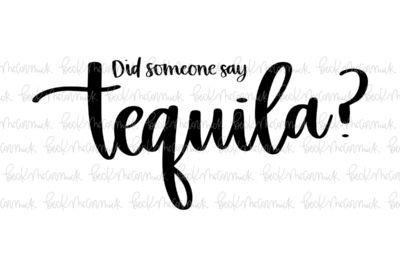 Did someone say
tequila?